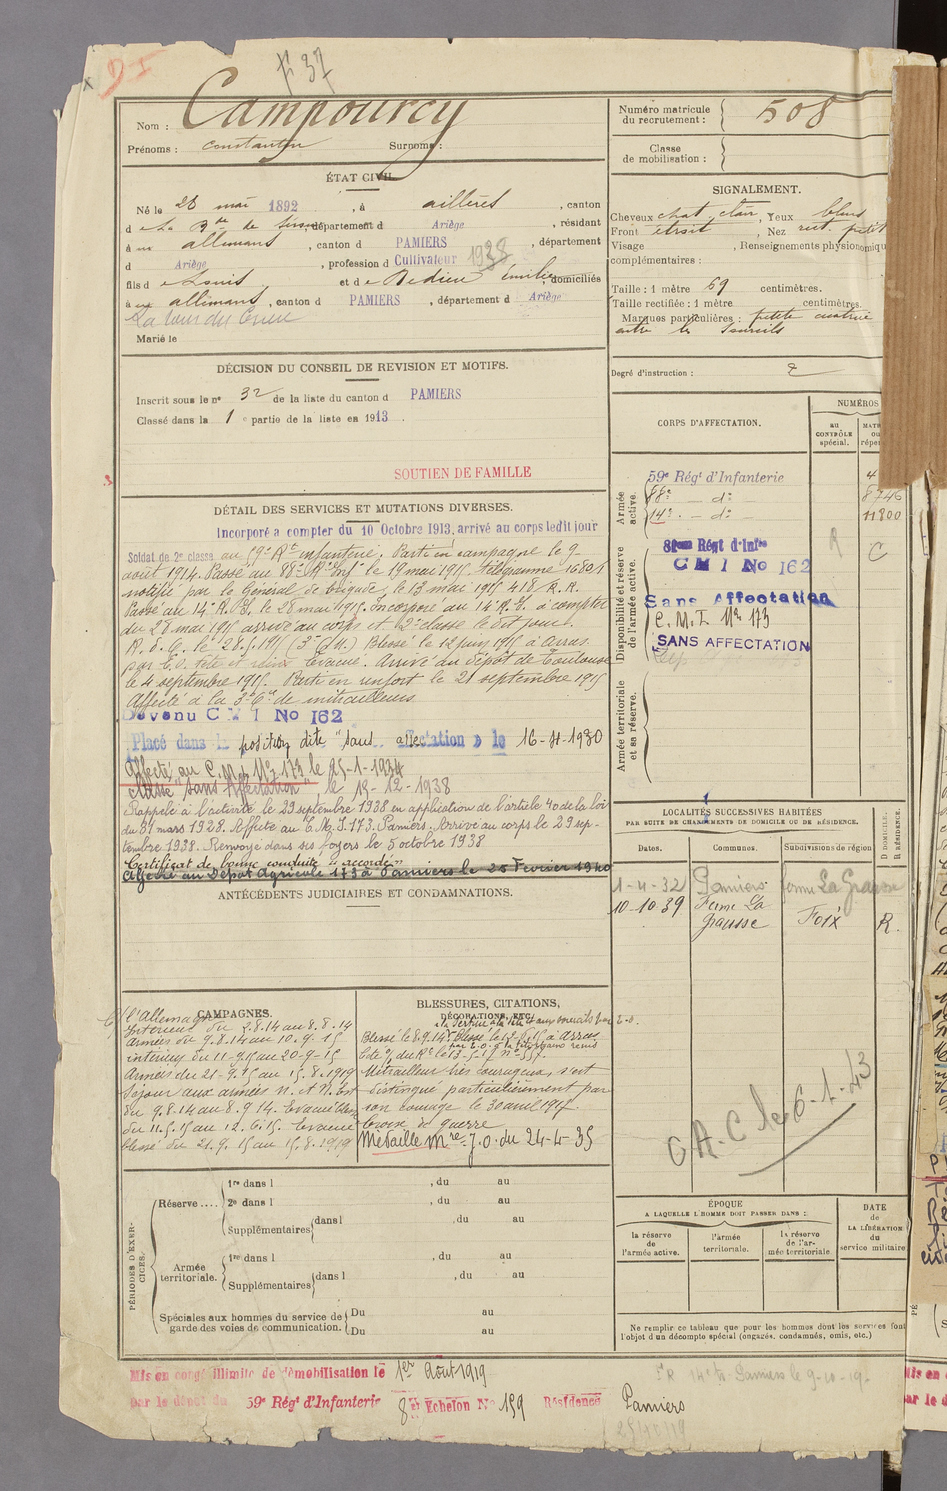 D I
F 37
Nom : Campourcy
Prénoms : Constantin Surnoms :
ÉTAT CIVIL
Né le 28 mai 1892, à aillères, canton
d e La Bde de , département d Ariège, résidant
à aux allemans, canton d PAMIERS, département
d Ariège, profession d Cultivateur 1938
fils d e Louis et d e Dedieu émilie, domiciliés
à aux allemans, canton d PAMIERS, département d Ariège
La tour du Crieu
Marié le
DÉCISION DU CONSEIL DE REVISION ET MOTIFS.
Inscrit sous le no 32 de la liste du canton d PAMIERS
Classé dans la 1 e partie de la liste en 1913.
SOUTIEN DE FAMILLE
DÉTAIL DES SERVICES ET MUTATIONS DIVERSES.
Incorporé a compter du 10 Octobre 1913, arrivé au corps ledit jour
Soldat de 2e classe au 59e Rt infanterie. Parti en campagne le 9
août 1914. Passé au 88e Rt Infie le 19 mai 1915. télégramme 1680/1
notifié par le Général de brigade, le 13 mai 1915 418/R.R.
Passé au 14e R.I. le 28 mai 1915. Incorporé au 14e R.I. à compter
du 28 mai 1915 arrivé au corps et 2e classe le dit jour.
Blessé le 12 juin 1915 à Arras
par E.O. tête et reins. Evacué. Arrivé au dépôt de Toulouse
le 4 septembre 1915. Parti en renfort le 21 septembre 1915
Affecté à la 3e Cie de mitrailleurs
Devenu C M I No 162
Placé dans la position dite "sans affectation" le 16-4-1930
Affecté au C.M.I. No 173 le 25-1-1934
Classé "sans Affectation", le 15-12-1938
Rappelé à l'activité le 29 septembre 1938 en application de l'article 40 de la loi
du 31 mars 1928. Affecté au C.M.I. 173. Pamiers. Arrivé au corps le 29 sep-
tembre 1938. Renvoyé dans ses foyers le 5 octobre 1938
Certificat de bonne conduite "accordé"
Affecté au Dépot Agricole 173 à Pamiers le 25 Fevrier 1940
ANTÉCÉDENTS JUDICIAIRES ET CONDAMNATIONS.
CAMPAGNES.
C/ l'Allemagne
Intérieur du 2.8.14 au 8.8.14
Armées du 9.8.14 au 10.9.15
intérieur du 11-9-15 au 20-9-15
Armées du 21-9-15 au 15.8.1919
Séjour aux armées N. et N. Est
du 9.8.14 au 8.9.14. Evacué blessé
du 11.5.15 au 12.6.15. Evacué
blessé du 21.9.15 au 15.8.1919
BLESSURES, CITATIONS,
DÉCORATIONS, ETC.
Blessé le 8.9.14. Blessé le 12-6-15 à Arras
Mitrailleur très courageux, s'est
distingué particulièrement par
son courage le 30 avril 1917
Croix de guerre
Médaille Mre J.O. du 24-4-35
PÉRIODES D'EXERCICES.
Réserve....
1re dans l , du au
2e dans l , du au
Supplémentaires dans l , du au
Armée territoriale.
1re dans l , du au
Supplémentaires dans l , du au
Spéciales aux hommes du service de garde des voies de communication. Du au
Du au
Numéro matricule du recrutement : 508
Classe de mobilisation :
SIGNALEMENT.
Cheveux chat. clair, Yeux bleus
Front étroit, Nez rect. petit
Visage , Renseignements physionomiqu
complémentaires :
Taille : 1 mètre 69 centimètres.
Taille rectifiée : 1 mètre centimètres.
Marques particulières : petite cicatrice
entre les sourcils
Degré d'instruction : 2
CORPS D'AFFECTATION.
NUMÉROS
au CONTRÔLE spécial.
Armée active.
59e Régt d'Infanterie
88e — do — 8746
14e — do — 11800
Disponibilité et réserve de l'armée active.
Régt d'Infie
C M I No 162
Sans Affectation
C.M.I. No 173
SANS AFFECTATION
R C
Armée territoriale et sa réserve.
LOCALITÉS SUCCESSIVES HABITÉES
PAR SUITE DE CHANGEMENTS DE DOMICILE OU DE RÉSIDENCE.
Dates. Communes. Subdivisions de région D DOMICILE. R RÉSIDENCE.
1-4-32 Pamiers ferme La Grausse
10-10-39 Ferme La Grausse Foix R.
G.A.C le 6.1.43
ÉPOQUE
A LAQUELLE L'HOMME DOIT PASSER DANS :
la réserve de l'armée active.
l'armée territoriale.
la réserve de l'armée territoriale
DATE de LA LIBÉRATION du service militaire
Ne remplir ce tableau que pour les hommes dont les services font
l'objet d'un décompte spécial (engagés, condamnés, omis, etc.)
Mis en congé illimité de démobilisation le 1er Août 1919
par le dépôt du 59e Régt d'Infanterie 8e Echelon No 159 Résidence Pamiers